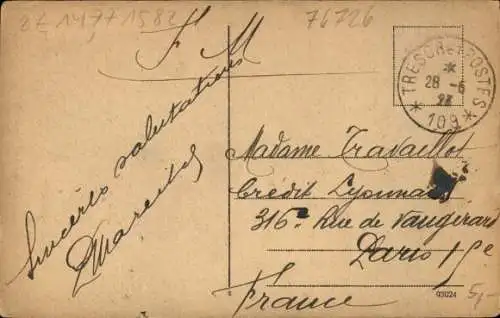 76726
F M
TRESOR ET POSTES
28 - 6
* 109 *
Sincères salutations
Madame Travaillot
Crédit Lyonnais
316 Rue de Vaugirard
Paris 15e
France
93024
5,-